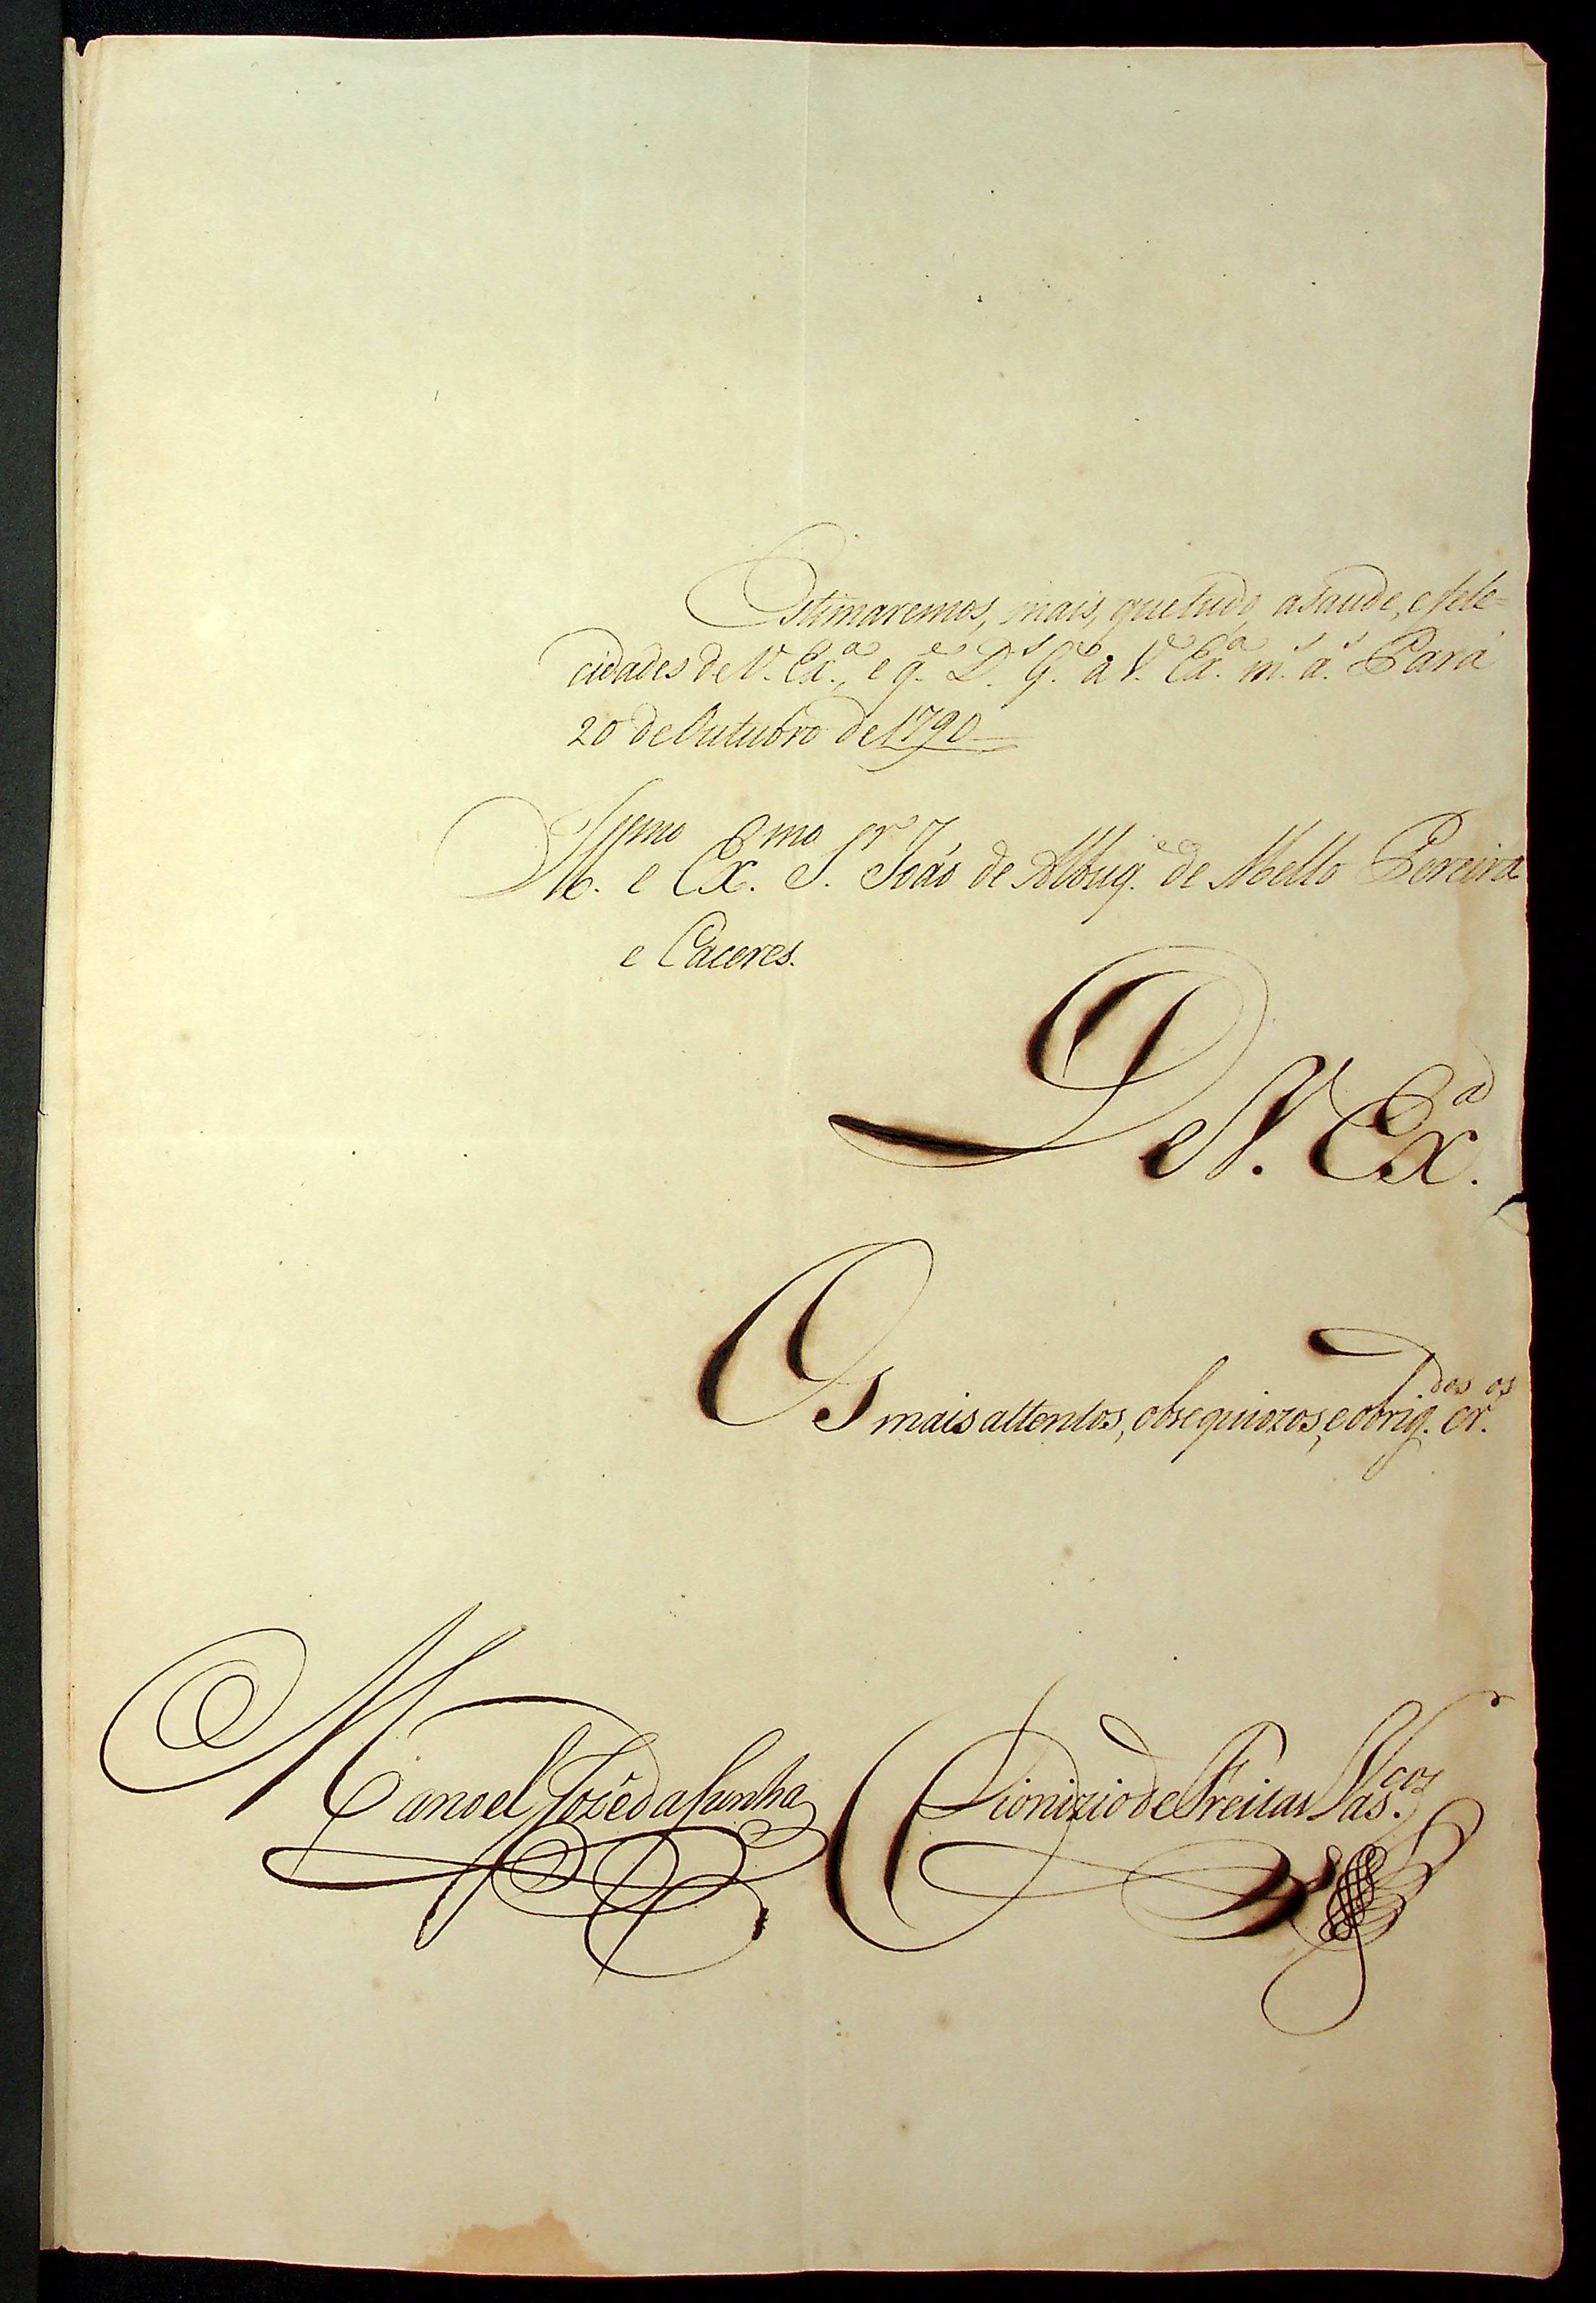 Estimaremos, mais, que tudo, a saude, e fele=
cidades de V. Ex.ª, e q.e D.s G.e a V. Ex.ª m.s a.s Pará
20 de Outubro de 1790
Ill.mo e Ex.mo S.r João de Albuq.e de Mello Pereira
e Caceres.
De V. Ex.ª
Os mais attentos, obsequiozos, e obrig.dos cr.os
Manoel Jozé da Cunha Dionizio de Freitas Vas.cos